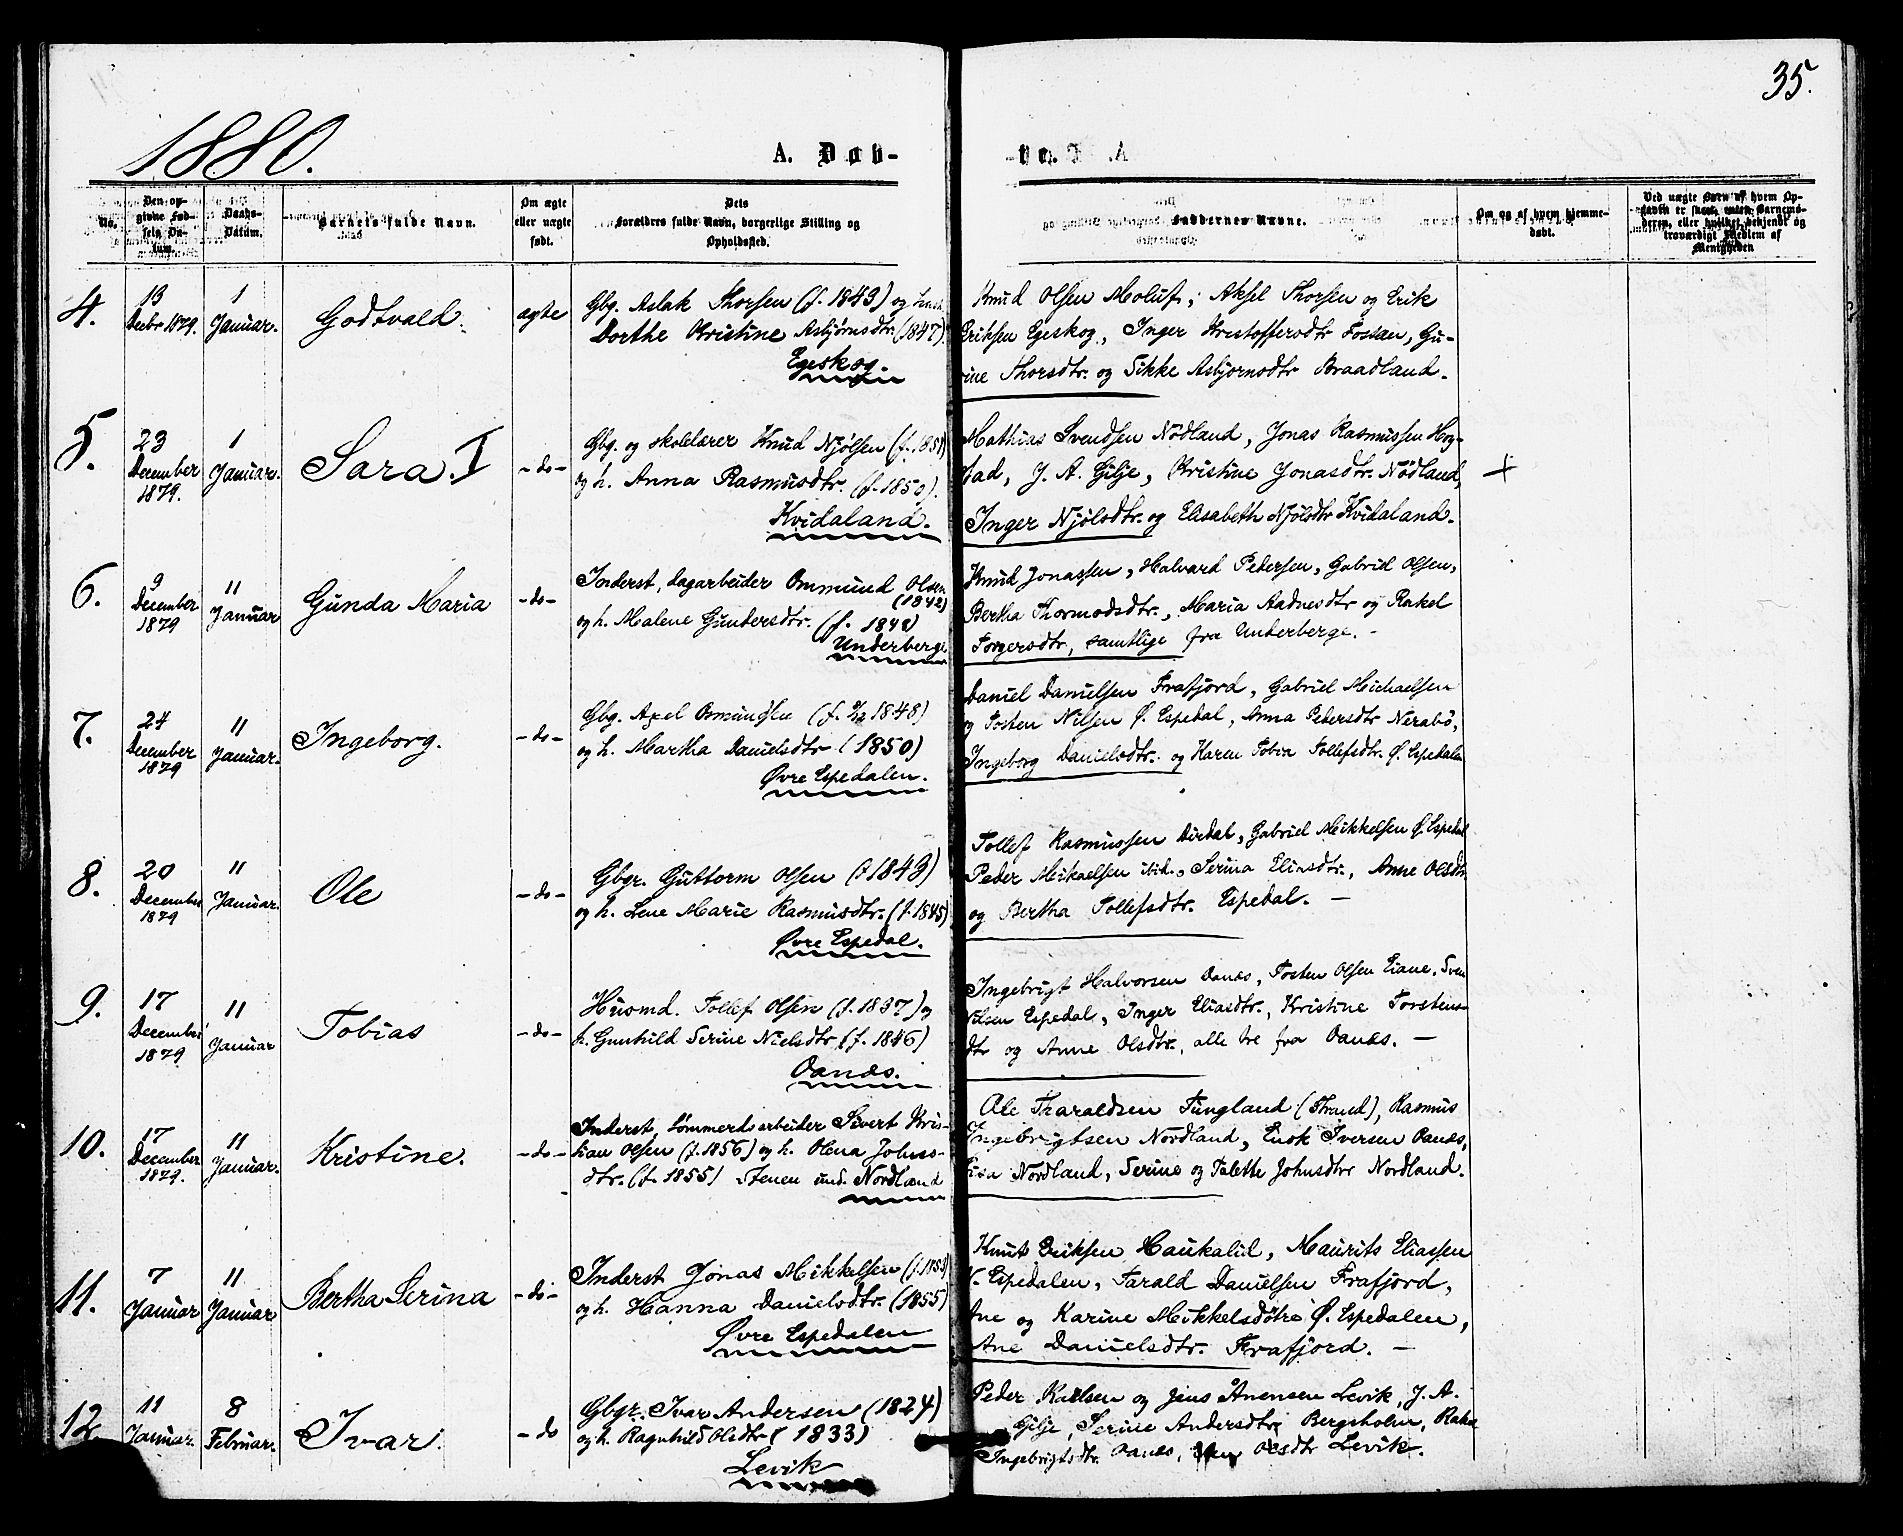 35.
1880.
A. Døb-
No.
Den op-
givne Fød-
sels Da-
tum.
Daabs-
Datum.
Barnets fulde Navn.
Om ægte
eller uægte
født.
Dets
Forældres fulde Navn, borgerlige Stilling og
Opholdssted.
Faddernes Navne.
Om og af hvem hjemme-
døbt.
Ved uægte Barn af hvem Op-
gaven er skeet, enten Barnemo-
deren, eller hvilket bekjendt og
troværdigt Medlem af
Menigheden
4.
13
Decbr 1879.
1
Januar.
Godtvald.
ægte
Gbg. Aslak Thorsen (f. 1843) og
Dorthe Kristine Asbjørnsdtr. (1847).
Egeskog.
Knud Olsen Moluf, Aksel Thorsen og Erik
Eriksen Egeskog, Inger Kristoffersdtr Fossan, Gu-
rine Thorsdtr. og Sikke Asbjørnsdtr Braadland.
5.
23
December
1879.
1
Januar.
Sara. I
-do-
Gbg. og skolelærer Knud Njølsen (f. 1851)
og h. Anna Rasmusdtr. (f. 1850).
Kvidaland.
Mathias Svendsen Nödland, Jonas Rasmussen Hog-
stad, J. A. Gilje, Kristine Jonasdtr. Nödland,
Inger Njölsdtr. og Elisabeth Njölsdtr Kvidaland.
+
6.
9
December
1879
11
Januar
Gunda Maria
-do-
Inderst, dagarbeider Ommund Olsen
(1842)
og h. Malene Gundersdtr. (f. 1848)
Underberge
Knud Jonassen, Halvard Pedersen, Gabriel Olsen,
Bertha Thormodsdtr., Maria Aadnesdtr og Rakel
Torgersdtr, samtlige fra Underberge. -
7.
24
December
1879
11
Januar.
Ingeborg.
-do-
Gbg. Axel Osmundsen (f. 1848)
og h. Martha Danielsdtr (1850)
Øvre Espedalen.
Daniel Danielsen Frafjord, Gabriel Michaelsen
og Tosten Nilsen Ø. Espedal, Anna Pedersdtr Nerabö,
Ingeborg Danielsdtr. og Karen Tobia Tollefsdtr. Ø. Espedalen
8.
20
December
1879
11
Januar.
Ole
-do-
Gbgr. Guttorm Olsen (f 1843)
og h. Lene Marie Rasmusdtr. (f. 1845)
Øvre Espedal.
Tollef Rasmussen Dirdal, Gabriel Mikkelsen Ø. Espedal
Peder Mikaelsen ibid., Serina Eliasdtr., Anne Olsdtr.
og Bertha Tollefsdtr. Espedal. -
9.
17
December
1879
11
Januar
Tobias
-do-
Husmd. Tollef Olsen (f. 1837) og
h. Gunhild Serine Nielsdtr (f. 1846)
Oanæs.
Ingebrigt Halvorsen Oanæs, Tosten Olsen Eiane, Sven
Nilsen Espedal, Inger Eliasdtr., Kristine Torstens-
dtr og Anne Olsdtr., alle tre fra Oanæs. -
10.
17
December
1879.
11
Januar.
Kristine.
-do-
Inderst, tømmerdsarbeider Sivert Kris-
tian Olsen (f. 1856) og h. Olena Johns-
dtr. (f. 1855) Stenen und. Nordland
Ole Tharaldsen Tungland (Strand), Rasmus
Ingebrigtsen Nordland, Enok Iversen Oanæs,
Nordland, Serine og Talette Johnsdtre Nordland.
11.
7
Januar
11
Januar
Bertha Serina
-do-
Inderst Jonas Mikkelsen (f. 1853)
og h. Hanna Danielsdtr. (1855)
Øvre Espedalen
Knut Eriksen Haukalid, Maurits Eliassen
N. Espedalen, Tarald Danielsen Frafjord,
Ane og Karine Mikkelsdötre Ø. Espedalen,
Ane Danielsdtr. Frafjord. -
12
11
Januar.
8
Februar.
Ivar.
-do
Gbgr. Ivar Andersen (1824)
og h. Ragnhild Olsdtr (1833)
Levik
Peder Karlsen og Jens Ånensen Levik, J. A.
Gilje, Serine Andersdtr Bergsholm,
Ingebrigtsdtr. Oanæs, Olsdtr Levik.